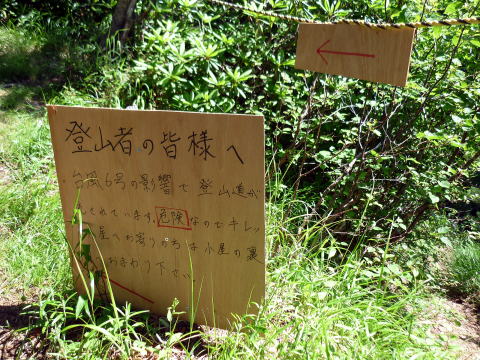 登山者の皆様へ
台風6号の影響で登山道が
されています。危険なのでキレッ
屋へお寄りの方は小屋の裏
おまわり下さい